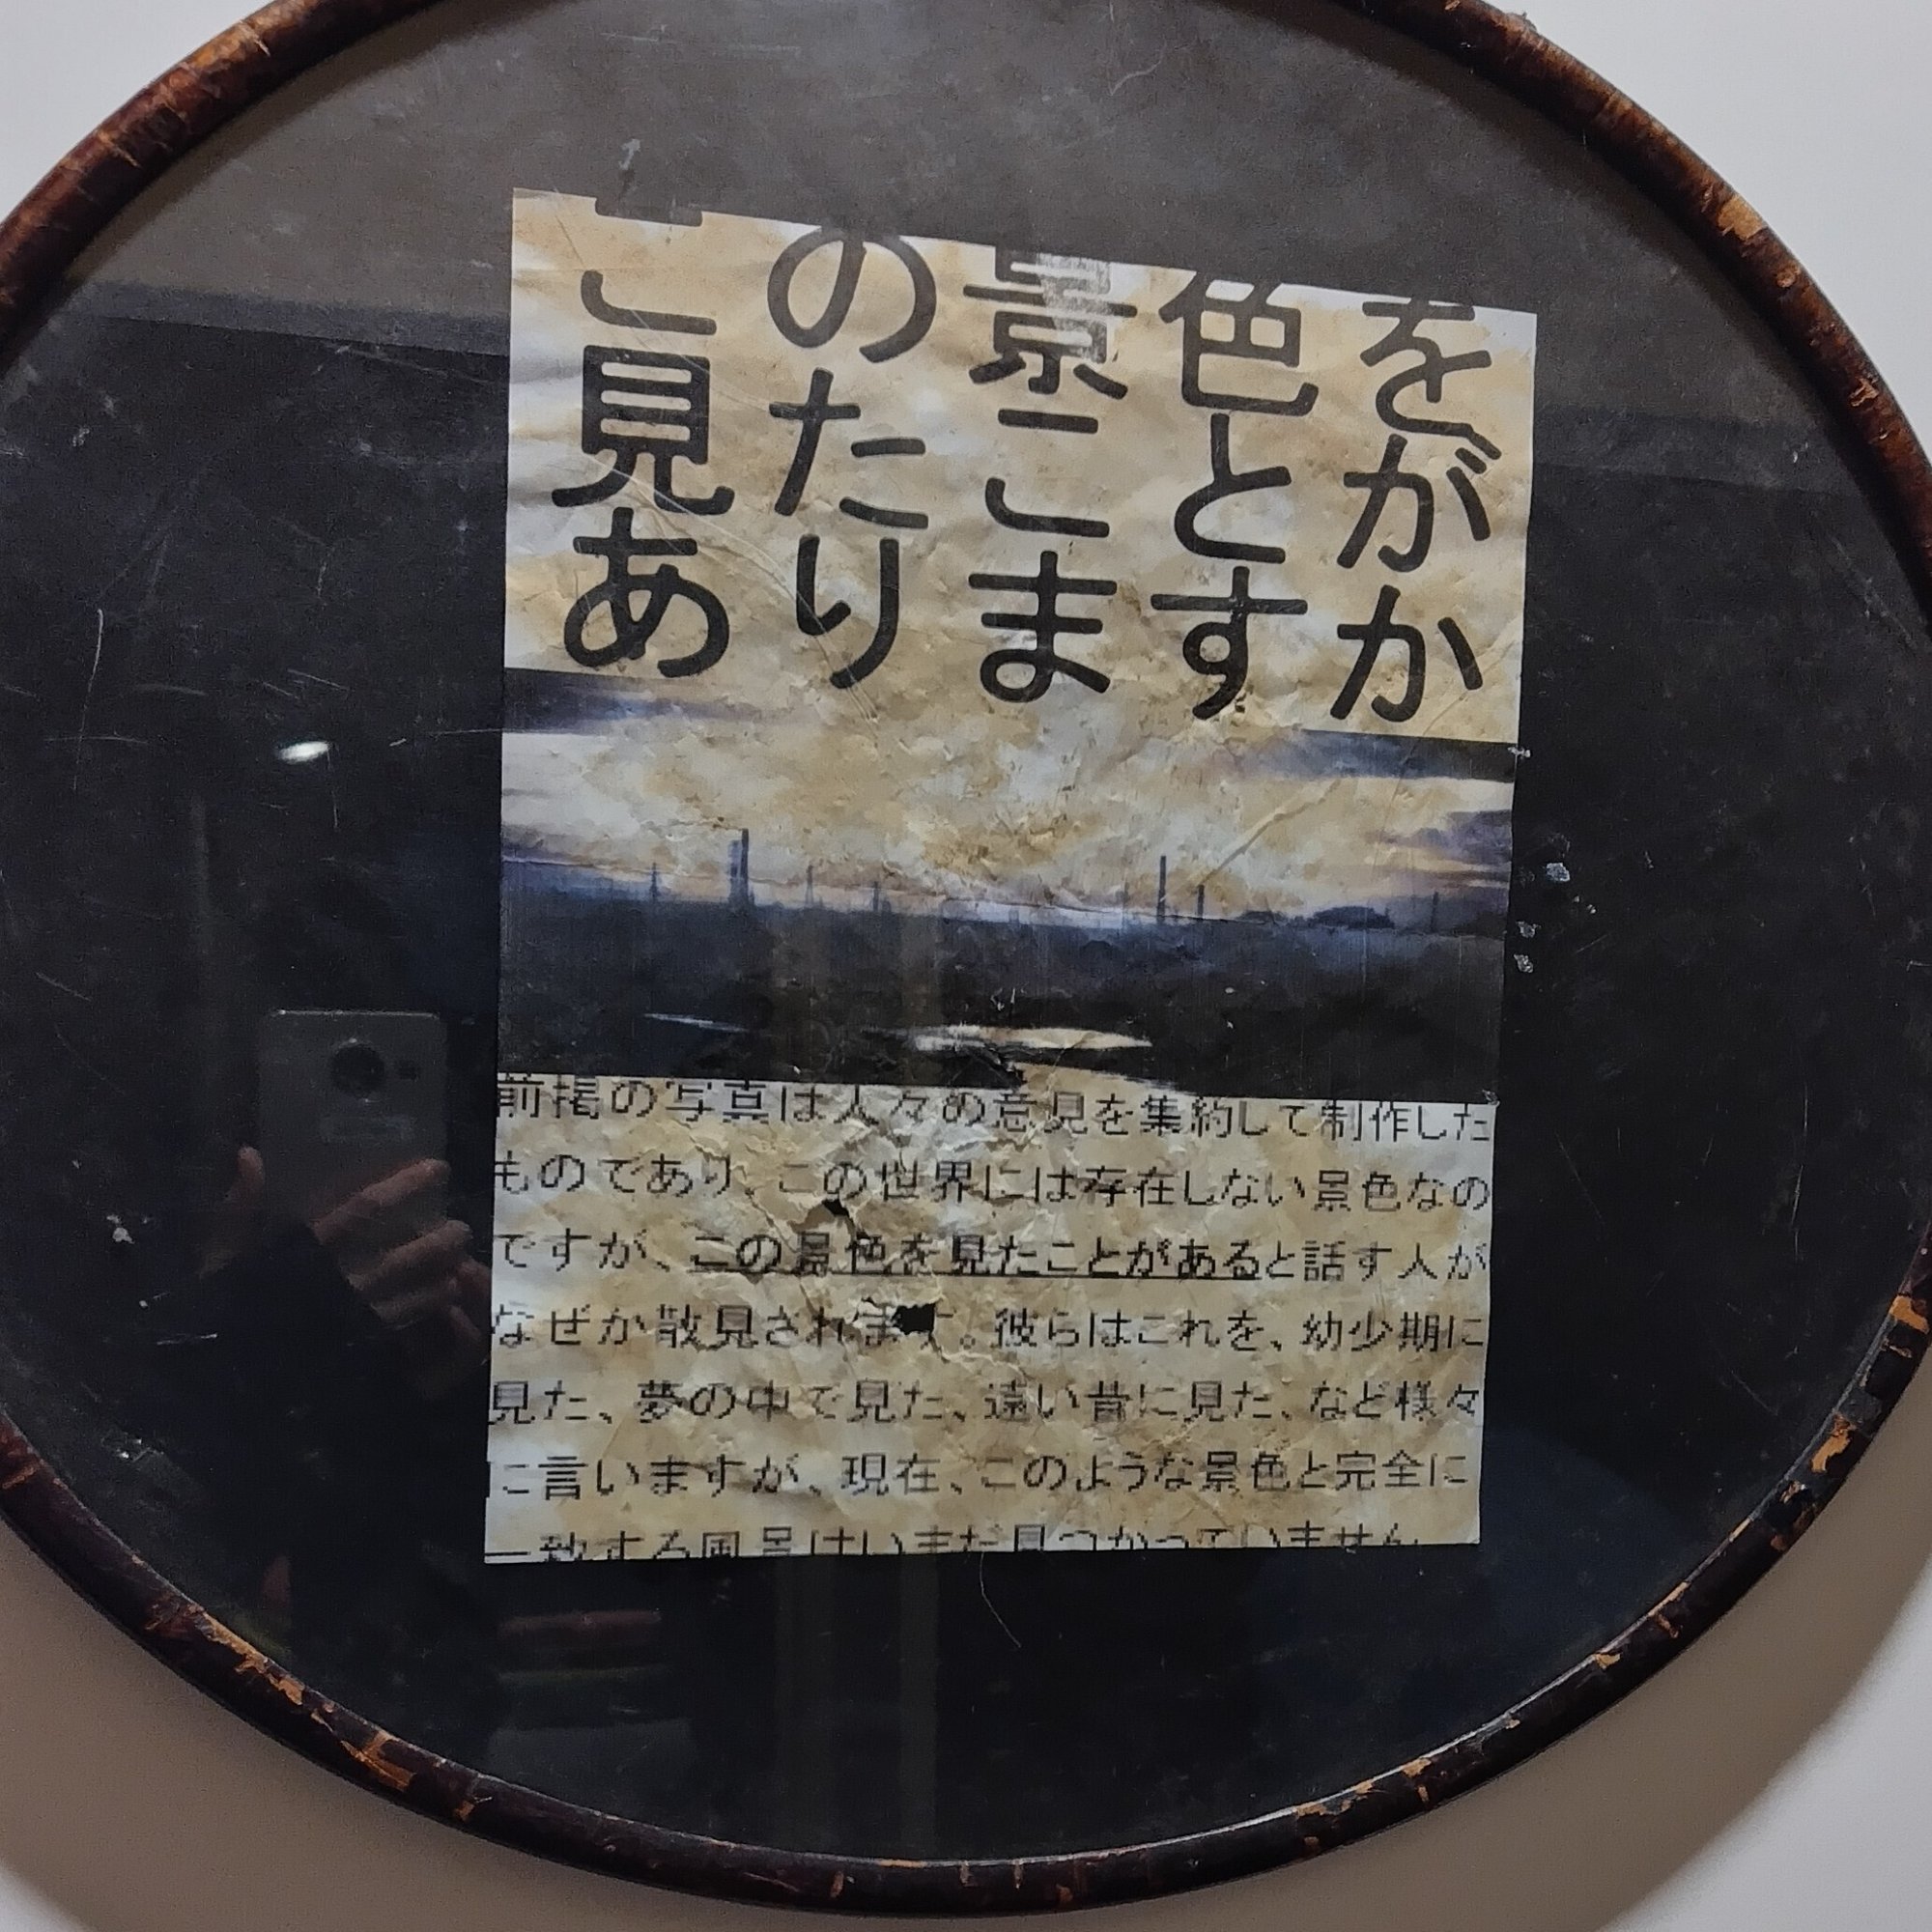 この景色を
見たことが
ありますか
前掲の写真は人々の意見を集約して制作した
ものであり、この世界には存在しない景色なの
ですが、この景色を見たことがあると話す人が
なぜか散見されます。彼らはこれを、幼少期に
見た、夢の中で見た、遠い昔に見た、など様々
に言いますが、現在、このような景色と完全に
一致する風景はいまだ見つかっていません